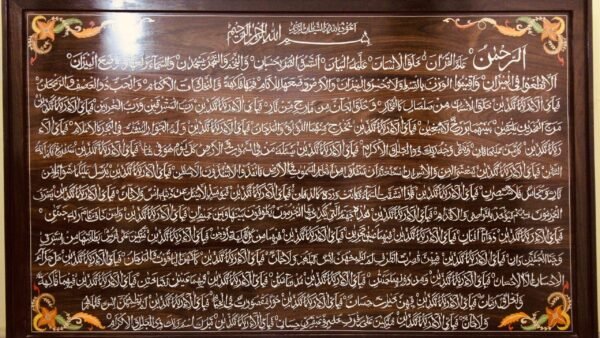 أعوذ بالله من الشيطان الرجيم
بسم الله الرحمن الرحيم
الرحمن علم القرآن خلق الإنسان علمه البيان الشمس والقمر بحسبان والنجم والشجر يسجدان والسماء رفعها ووضع الميزان
ألا تطغوا في الميزان وأقيموا الوزن بالقسط ولا تخسروا الميزان والأرض وضعها للأنام فيها فاكهة والنخل ذات الأكمام والحب ذو العصف والريحان
فبأي آلاء ربكما تكذبان خلق الإنسان من صلصال كالفخار وخلق الجان من مارج من نار فبأي آلاء ربكما تكذبان رب المشرقين ورب المغربين فبأي آلاء ربكما تكذبان
مرج البحرين يلتقيان بينهما برزخ لا يبغيان فبأي آلاء ربكما تكذبان يخرج منهما اللؤلؤ والمرجان فبأي آلاء ربكما تكذبان وله الجوار المنشآت في البحر كالأعلام
فبأي آلاء ربكما تكذبان كل من عليها فان ويبقى وجه ربك ذو الجلال والإكرام فبأي آلاء ربكما تكذبان يسأله من في السماوات والأرض كل يوم هو في شأن
فبأي آلاء ربكما تكذبان سنفرغ لكم أيها الثقلان فبأي آلاء ربكما تكذبان يا معشر الجن والإنس إن استطعتم أن تنفذوا من أقطار السماوات والأرض فانفذوا لا تنفذون إلا بسلطان فبأي آلاء ربكما تكذبان يرسل عليكما شواظ من
نار ونحاس فلا تنتصران فبأي آلاء ربكما تكذبان فإذا انشقت السماء فكانت وردة كالدهان فبأي آلاء ربكما تكذبان فيومئذ لا يسأل عن ذنبه إنس ولا جان فبأي آلاء ربكما تكذبان يعرف
المجرمون بسيماهم فيؤخذ بالنواصي والأقدام فبأي آلاء ربكما تكذبان هذه جهنم التي يكذب بها المجرمون يطوفون بينها وبين حميم آن فبأي آلاء ربكما تكذبان ولمن خاف مقام ربه جنتان
فبأي آلاء ربكما تكذبان ذواتا أفنان فبأي آلاء ربكما تكذبان فيهما عينان تجريان فبأي آلاء ربكما تكذبان فيهما من كل فاكهة زوجان فبأي آلاء ربكما تكذبان متكئين على فرش بطائنها من إستبرق
وجنى الجنتين دان فبأي آلاء ربكما تكذبان فيهن قاصرات الطرف لم يطمثهن إنس قبلهم ولا جان فبأي آلاء ربكما تكذبان كأنهن الياقوت والمرجان فبأي آلاء ربكما تكذبان هل جزاء
الإحسان إلا الإحسان فبأي آلاء ربكما تكذبان ومن دونهما جنتان فبأي آلاء ربكما تكذبان مدهامتان فبأي آلاء ربكما تكذبان فيهما عينان نضاختان فبأي آلاء ربكما تكذبان فيهما فاكهة
ونخل ورمان فبأي آلاء ربكما تكذبان فيهن خيرات حسان فبأي آلاء ربكما تكذبان حور مقصورات في الخيام فبأي آلاء ربكما تكذبان لم يطمثهن إنس قبلهم
ولا جان فبأي آلاء ربكما تكذبان متكئين على رفرف خضر وعبقري حسان فبأي آلاء ربكما تكذبان تبارك اسم ربك ذي الجلال والإكرام